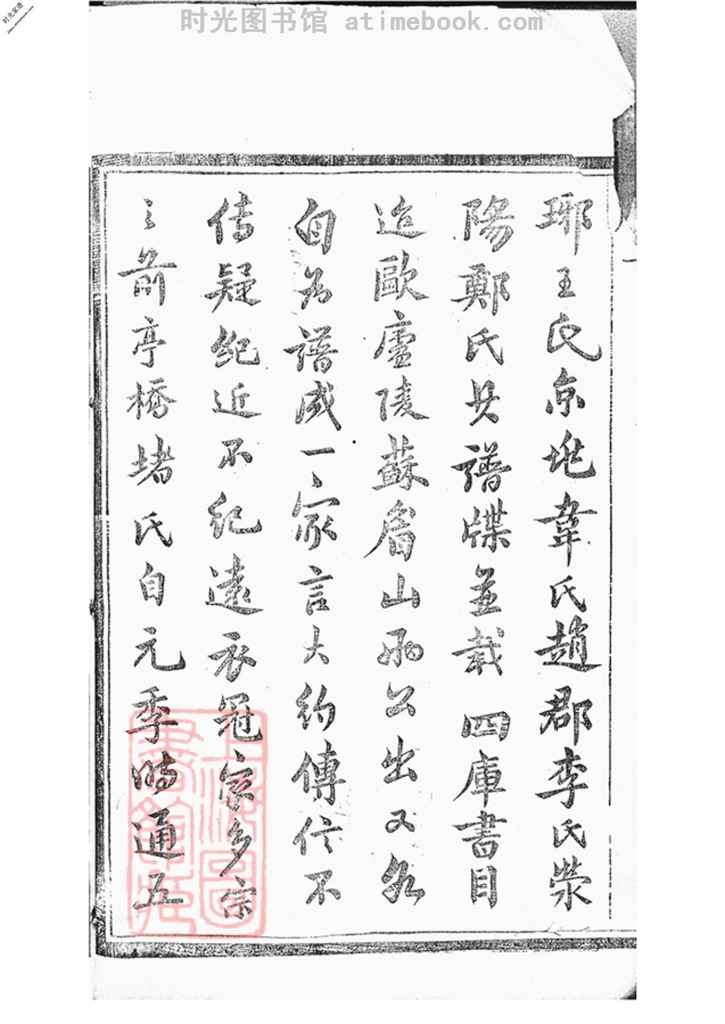 时光图书馆 atimebook.com
瑯王氏京兆韋氏趙郡李氏滎
陽鄭氏其譜牒並載四庫書目
迨歐廬陵蘇眉山兩公出又各
自為譜成一家言大約傳信不
傳疑紀近不紀遠衣冠家多宗
之前亭橋堵氏自元季時通五